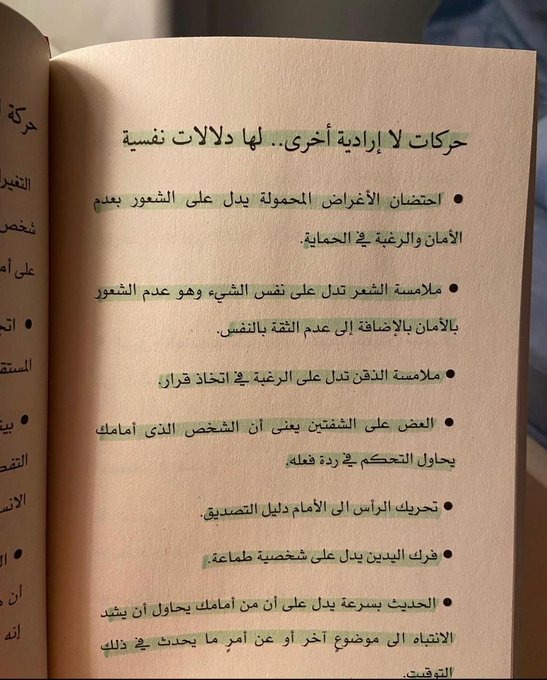 حركة
التغيرا
شخص
على أم
المستقـ
التفص
الانس
أن
إنه
حركات لا إرادية أخرى.. لها دلالات نفسية
● احتضان الأغراض المحمولة يدل على الشعور بعدم
الأمان والرغبة في الحماية.
● ملامسة الشعر تدل على نفس الشيء وهو عدم الشعور
بالأمان بالإضافة إلى عدم الثقة بالنفس.
● ملامسة الذقن تدل على الرغبة في اتخاذ قرار.
● العض على الشفتين يعنى أن الشخص الذى أمامك
يحاول التحكم في ردة فعله.
● تحريك الرأس الى الأمام دليل التصديق.
● فرك اليدين يدل على شخصية طماعة.
● الحديث بسرعة يدل على أن من أمامك يحاول أن يشد
الانتباه الى موضوعٍ آخر أو عن أمرٍ ما يحدث في ذلك
التوقيت.